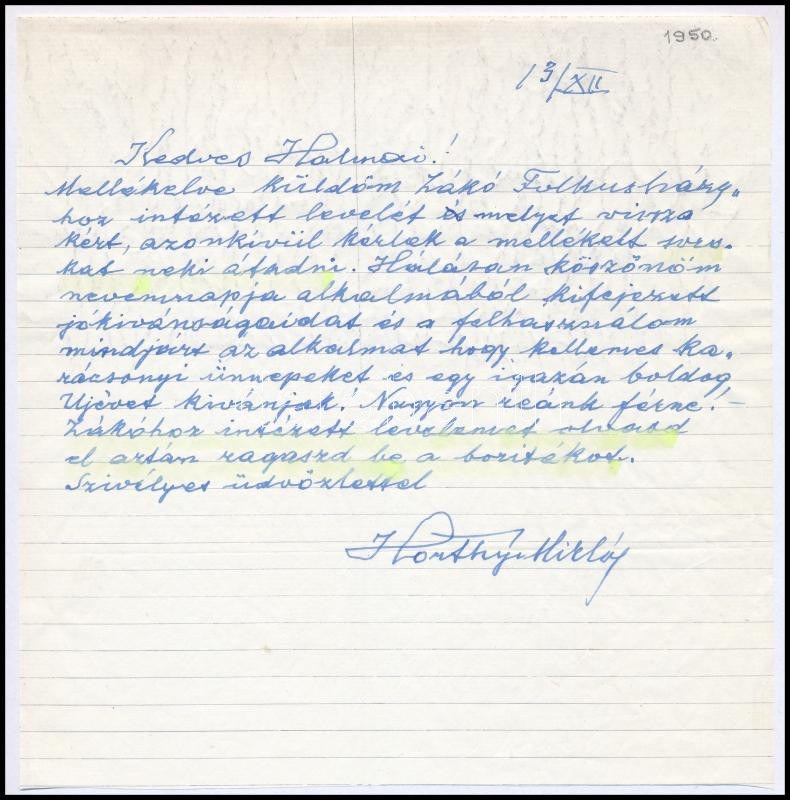 1950.
13/XII
Kedves Halmai!
Mellékelve küldöm Zákó Folkusházy-
hoz intézett levelét és melyet vissza
kért, azonkívül kérlek a mellékelt soro-
kat neki átadni. Hálásan köszönöm
nevemnapja alkalmából kifejezett
jókivánságaidat és a felhasználom
mindjárt az alkalmat hogy kellemes ka-
rácsonyi ünnepeket és egy igazán boldog
Ujévet kivánjak! Nagyon reánk férne! –
Zákóhoz intézett levelemet olvasd
el aztán ragaszd be a boritékot.
Szivélyes üdvözlettel
Horthy Miklós